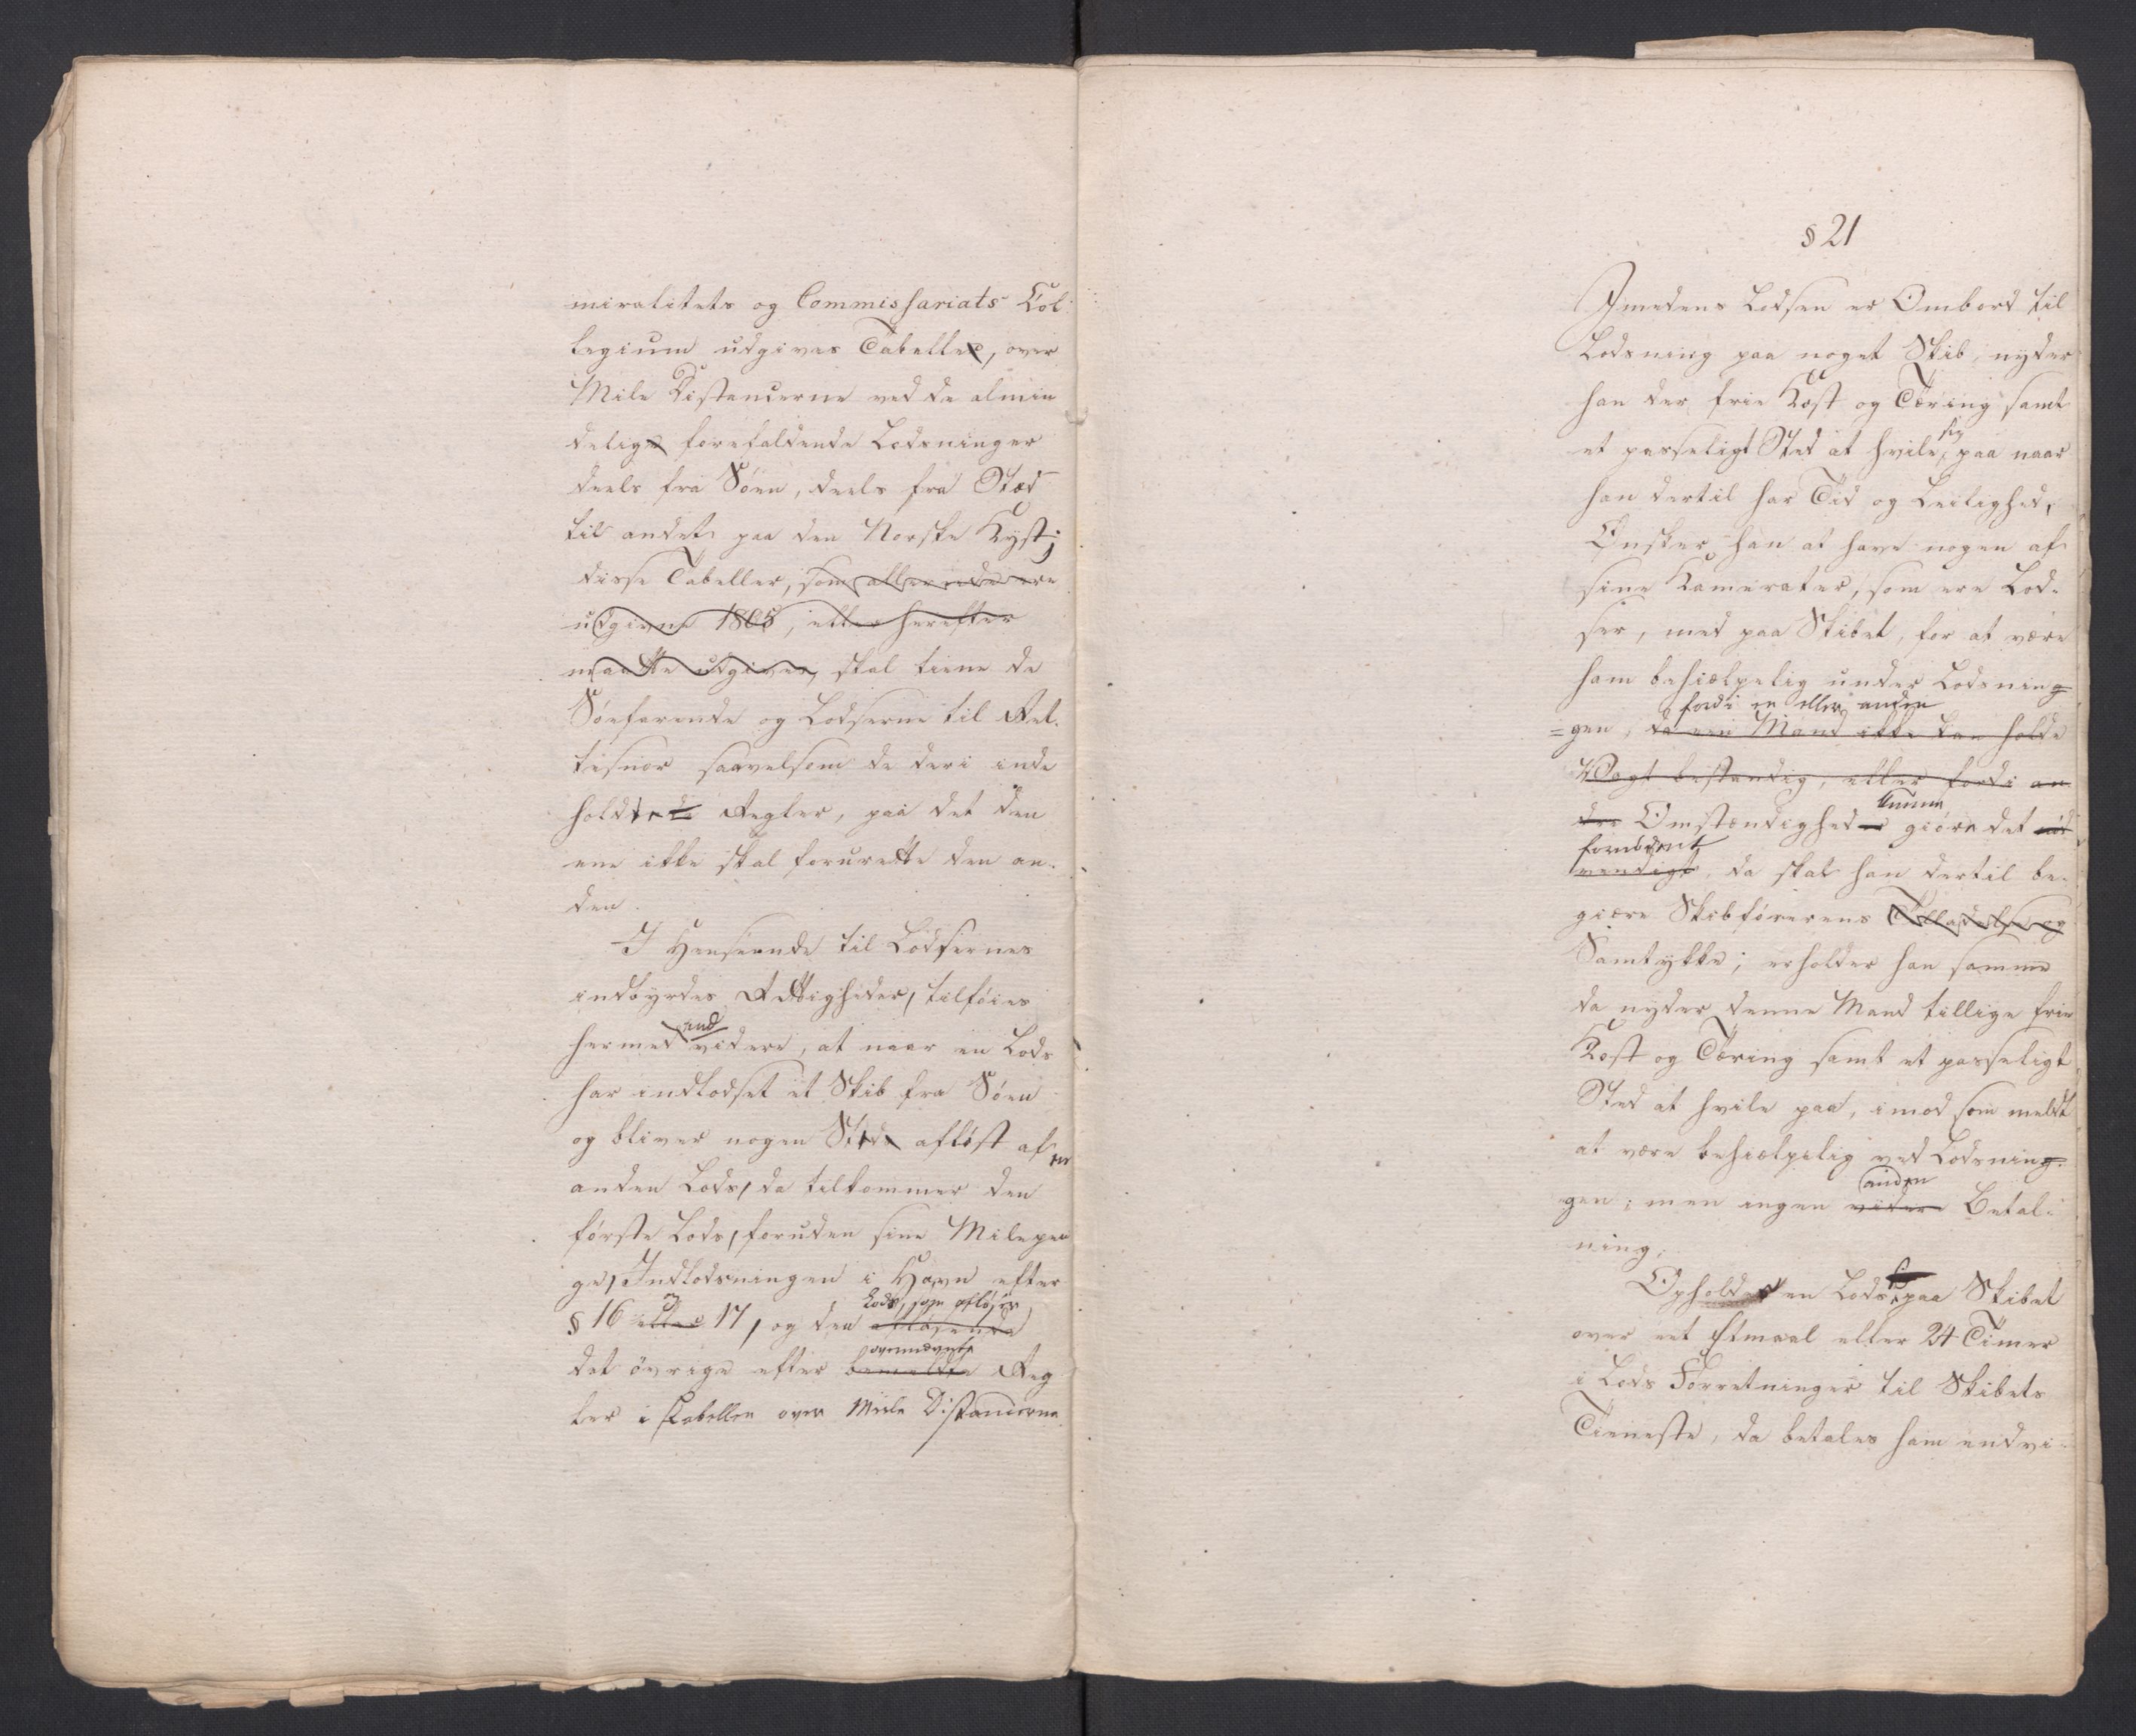 miralitets og Commissariats Col
legium udgives Tabeller, over
Mile Distancerne ved de almin
delige forefaldende Lodsninger
deels fra Söen, deels fra Stæd
til andet paa den Norske Kyst;
disse Tabeller, som allerede ere
udgivne 1805, eller herefter
maatte udgives, skal tiene de
Söefarende og Lodserne til Ret-
tesnor saavelsom de deri inde
holdte Regler, paa det den
ene ikke skal forurette den an-
den.
I Henseende til Lodsernes
indbyrdes Rettigheder, tilföies
end
hermed videre, at naar en Lods
har indlodset et Skib fra Söen
og bliver nogen Steds aflöst af en
anden Lods, da tilkommer den
förste Lods, foruden sine Milepen
ge, Indlodsningen i Havn efter
og Lods, som aflöser
§ 16 eller 17, og den aflösende
ovennævnte
det övrige efter bemeldte Reg
ler i Tabellen over Miile Distancerne.
§ 21
Imedens Lodsen er Ombord til
Lodsning paa noget Skib, nyder
han der frie Kost og Tæring samt
sig
et passeligt Sted at hvile paa naar
han dertil har Tid og Leilighed,
Önsker han at have nogen af
sine Kamerater, som ere Lod-
ser, med paa Skibet, for at være
ham behiælpelig under Lodsning
fordi en eller anden
=gen, da een Mand ikke kan holde
Vagt bestandig, eller fordi an
kunne
dre Omstændigheder giöre det nöd
fornödent
vendigt, da skal han dertil be-
giære Skibförerens Tilladelse og
Samtykke; erholder han samme
da nyder denne Mand tillige frie
Kost og Tæring samt et passeligt
Sted at hvile paa, imod som meldt
at være behiælpelig ved Lodsning-
anden
gen; men ingen videre Betal-
ning.
Opholder en Lods paa Skibet
over eet Etmaal eller 24 Timer
i Lods Forretninger til Skibets
Tieneste, da betales ham endvi-